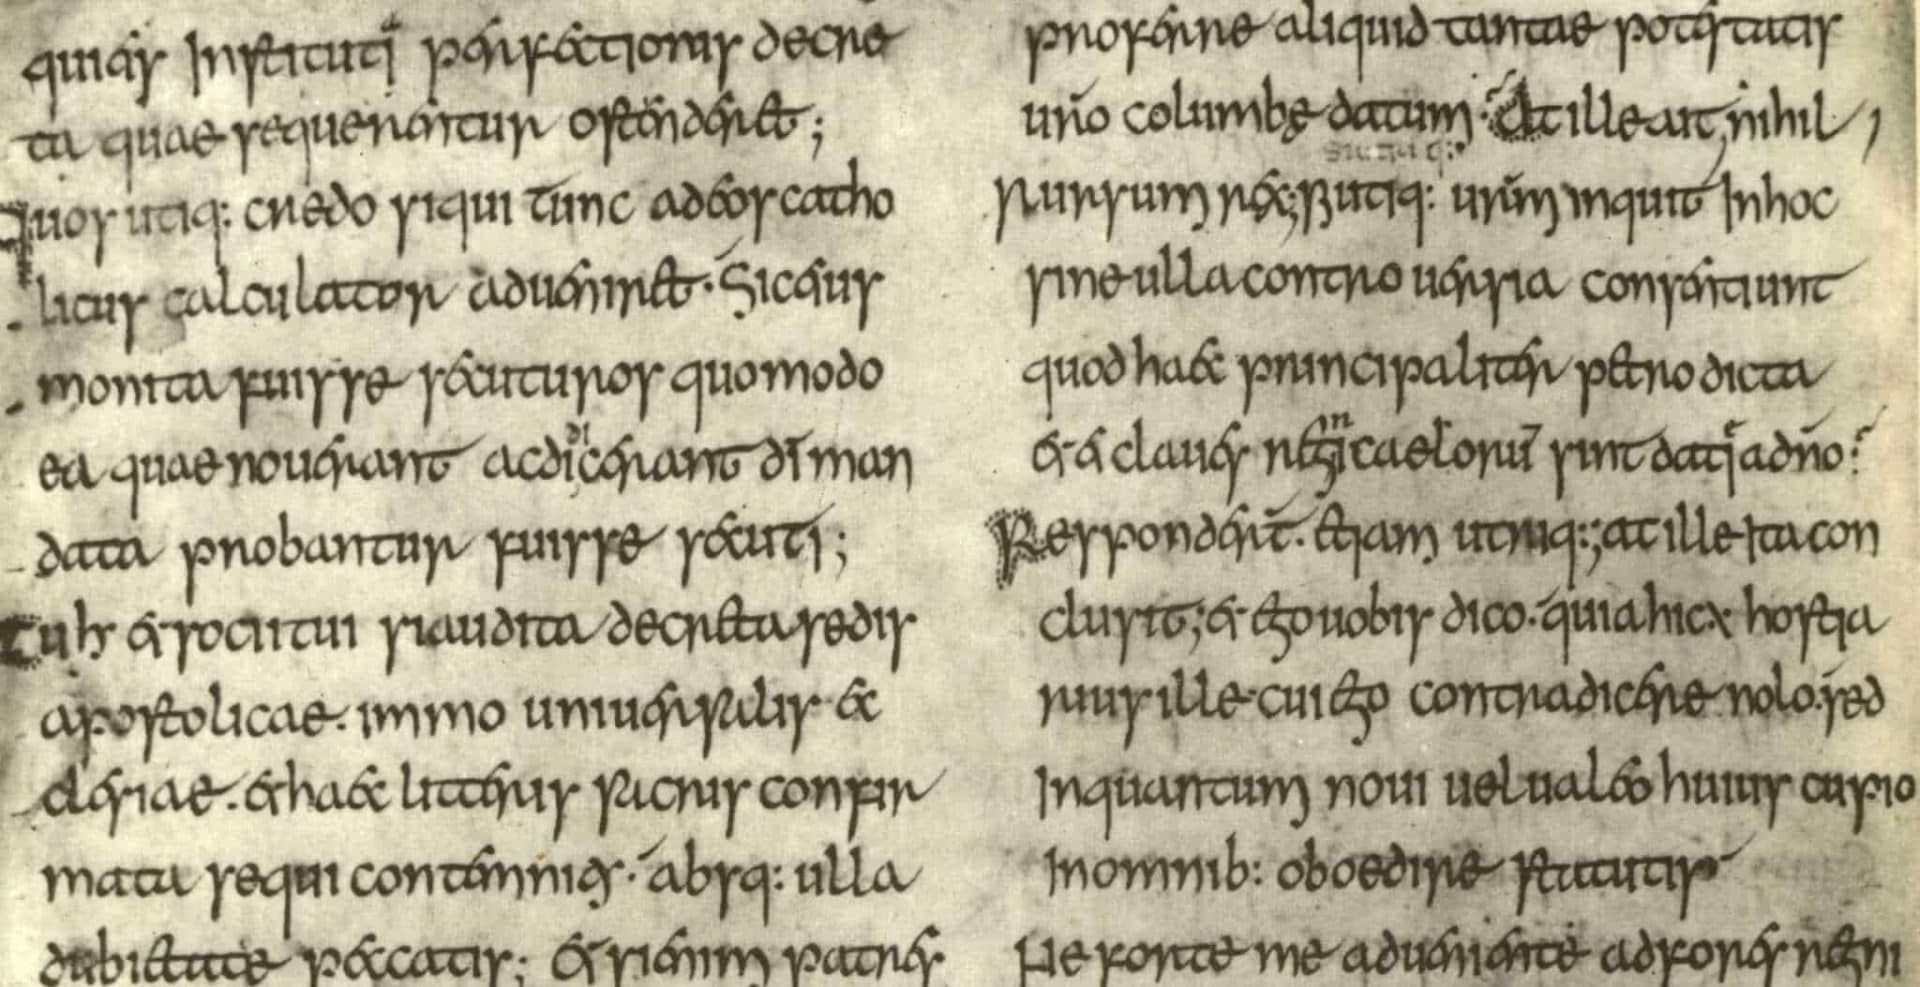 qui eis Instituti perfectioris decre
ta quae sequerentur ostenderet;
Quos utiq: credo si qui tunc ad eos catho
licus calculator adueniret. Sic eius
monita fuisse secuturos quomodo
ea quae nouerant ac didicerant di man
data probantur fuisse secuti;
Tu h et socii tui si audita decreta sedis
apostolicae. immo uniuersalis ec
clesiae. et haec litteris sacris confir
mata sequi contemnitis. absq: ulla
dubietate peccatis; Etsi enim patres
proferre aliquid tantae potestatis
uro columbę datum. At ille ait, nihil,
Rursum rex; Si utiq: urm inquit In hoc
sine ulla controuersia consentiunt
quod haec principaliter petro dicta
et ei claues regni caelorum sint dati a dno?
Responderunt. Etiam utriq:; at ille Ita con
clusit; et ego uobis dico. quia hic x hostia
rius ille. cui ego contradicere nolo. sed
Inquantum noui uel ualeo huius cupio
Inomnib: oboedire statutis
Ne forte me adueniente ad fores regni